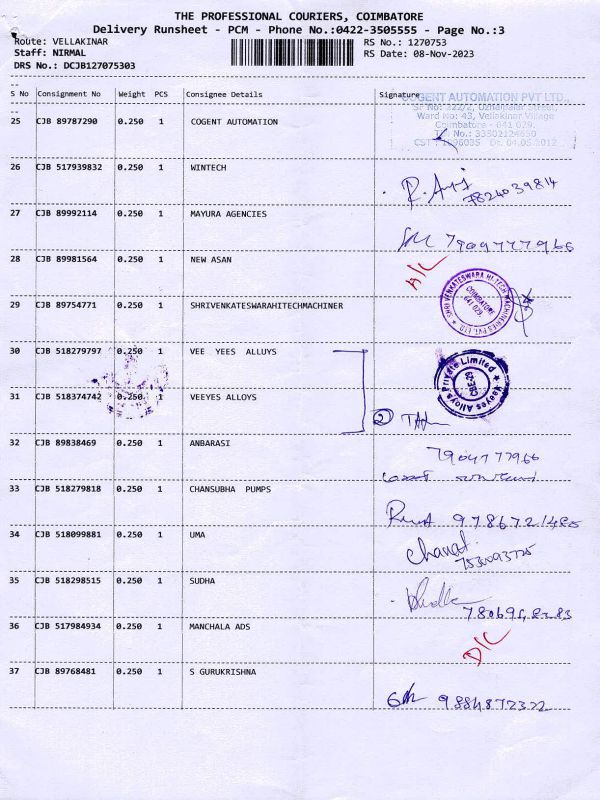 THE PROFESSIONAL COURIERS, COIMBATORE
Delivery Runsheet - PCM - Phone No.:0422-3505555 - Page No.:3
Route: VELLAKINAR RS No.: 1270753
Staff: NIRMAL RS Date: 08-Nov-2023
DRS No.: DCJB127075303
S No Consignment No Weight PCS Consignee Details Signature
COGENT AUTOMATION PVT LTD.,
Ward No: 43, Vellakinar Village
Coimbatore - 641 029.
25 CJB 89787290 0.250 1 COGENT AUTOMATION
26 CJB 517939832 0.250 1 WINTECH
7824039814
27 CJB 89992114 0.250 1 MAYURA AGENCIES
7909777966
28 CJB 89981564 0.250 1 NEW ASAN
29 CJB 89754771 0.250 1 SHRIVENKATESWARAHITECHMACHINER
SHRI VENKATESWARA HI-TECH MACHINERIES PVT. LTD
COIMBATORE
641 029.
30 CJB 518279797 0.250 1 VEE YEES ALLUYS
Veeyes Alloys Private Limited
CBE-29
31 CJB 518374742 0.250 1 VEEYES ALLOYS
2
32 CJB 89838469 0.250 1 ANBARASI
7904777966
33 CJB 518279818 0.250 1 CHANSUBHA PUMPS
9786721480
34 CJB 518099881 0.250 1 UMA
35 CJB 518298515 0.250 1 SUDHA
36 CJB 517984934 0.250 1 MANCHALA ADS
D/C
37 CJB 89768481 0.250 1 S GURUKRISHNA
9884872322